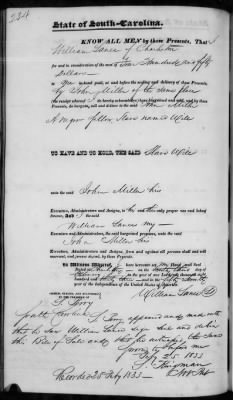 234
State of South-Carolina.
KNOW ALL MEN by these Presents, That I
William Lance of Charleston
for and in consideration of the sum of Two Hundred and fifty
Dollars
to me in hand paid, at and before the sealing and delivery of these Presents,
by John Miller of the same place
(the receipt whereof I do hereby acknowledge) have bargained and sold, and by these
Presents, do bargain, sell and deliver to the said John Miller
A negro fellow slave named
TO HAVE AND TO HOLD, THE SAID Slave
unto the said John Miller his
Executors, Administrators and Assigns, to his and their only proper use and behoof,
forever. And I the said
William Lance my
Executors, Administrators and Assigns, the said bargained premises, unto the said
John Miller his
Executors, Administrators and Assigns, from and against all persons shall and will
warrant, and forever defend by these Presents.
In Witness Whereof, I have hereunto set my Hand and Seal
Dated at Charleston on the day of
in the year of our Lord one thousand eight
hundred and thirty and in the fifty seventh
year of the Independence of the United States of America.
SIGNED, SEALED, AND DELIVERED
IN THE PRESENCE OF
William Lance
appeared and made oath
that he saw William Lance sign seal and deliver
this Bill of Sale and that he witnessed the same
Sworn to before me
Feby 25 1833
Recorded 25 Feby 1833